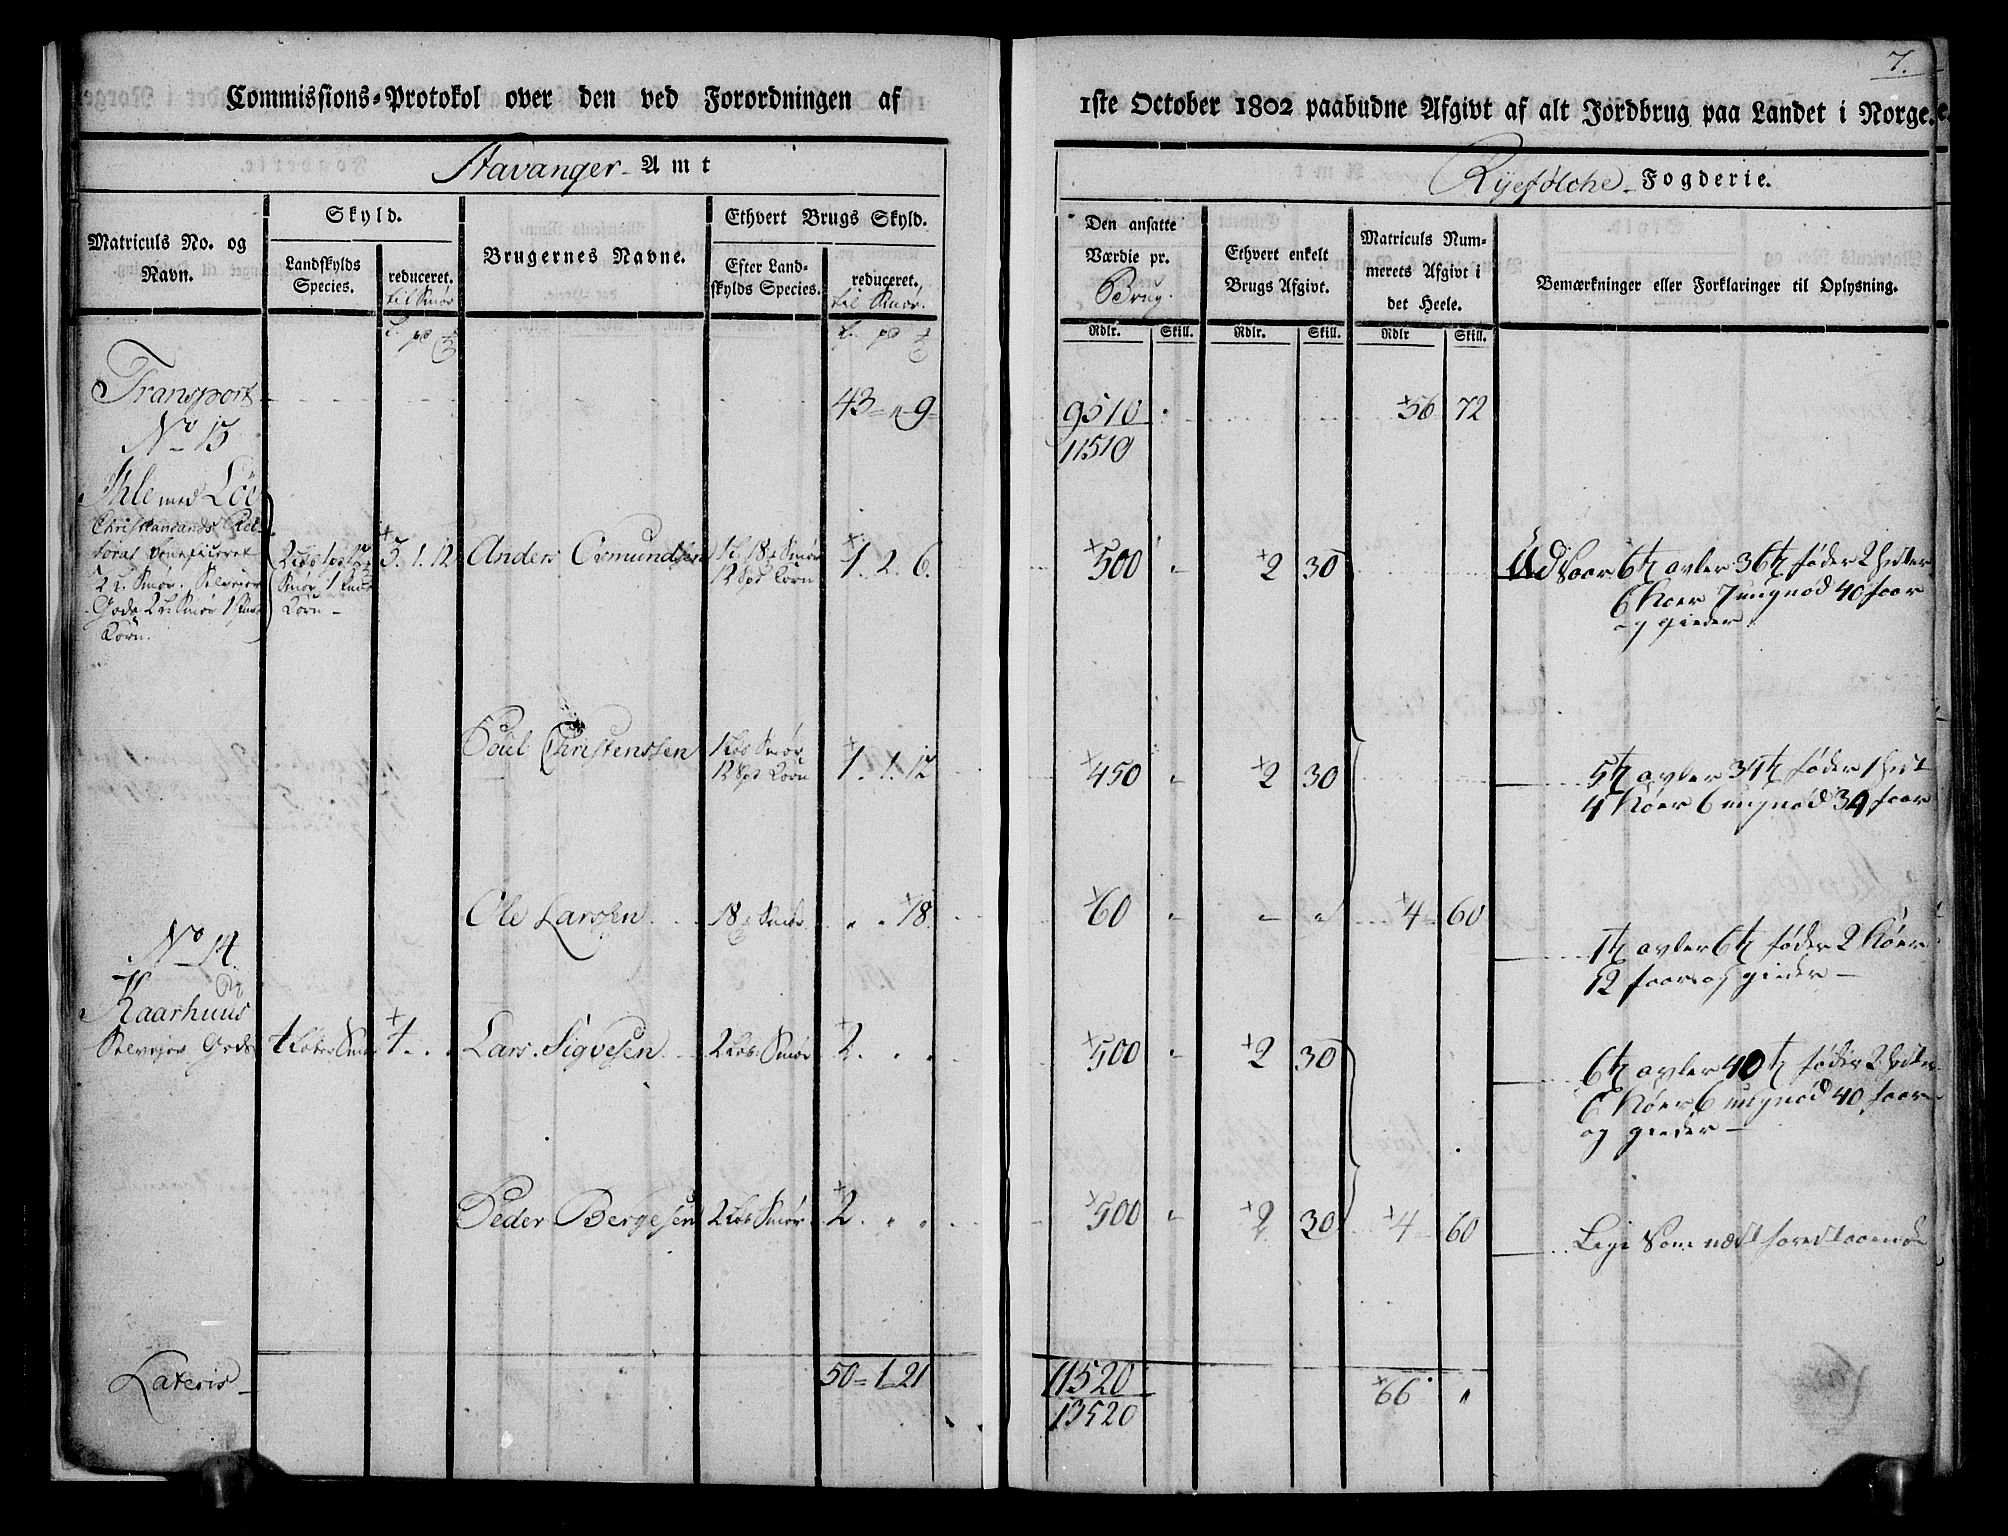 7.
Commissions-Protokol over den ved Forordningen af
1ste October 1802 paabudne Afgivt af alt Jordbrug paa Landet i Norge.
Stavanger Amt
Ryefolche Fogderie.
Matriculs No. og Navn.
Skyld.
Landskylds Species.
reduceret.
til Smør
Brugernes Navne.
Ethvert Brugs Skyld.
Efter Landskylds Species.
reduceret.
til Smør.
Den ansatte Værdie pr.
Brug.
Ethvert enkelt Brugs Afgivt.
Matriculs Nummerets Afgivt i det Heele.
Bemærkninger eller Forklaringer til Oplysning.
Rdlr. Skill. Rdlr. Skill. Rdlr Skill.
Transport 43 " 9 9510 56 72
11510
No 13
Ihle med Löe
Christiansands
beneficeret
2 L. Smør. Selveier
Gods 2 L. Smør 1
Korn.
Smør 1
Korn
3. 1. 12
Anders Osmundsen 1 L 18 Smør
12 Spd Korn 1. 2. 6. 500 " 2 30 Udsaar 6 t avler 36 t føder 2 Hester
6 Køer 7 ungnød 40 faar
og gieder.
Poul Christenssen 1 Løb Smør
12 Spd Korn 1. 1. 12 450 " 2 30 5 t avler 34 t føder 1 Hest
4 Køer 6 ungnød 34 faar
Ole Larssen 18 Smør " " 18. 60 " " " 4 60 1 t avler 6 t føder 2 Køer
12 faar og gieder
No 14
Kaarhuus
Selveier Gods 4 Løber Smør 4 . . Lars Sigvesen 2 Løb Smør 2. " " 500 " 2 30 6 t avler 40 t føder 2 Hester
6 Køer 6 ungnød 40 faar
og gieder
Peder Bergesen 2 Løb Smør 2. " " 500 " 2 30 4 60 Lige som næst forestaaende
Lateris 50 = 1 21 11520 66 "
13520